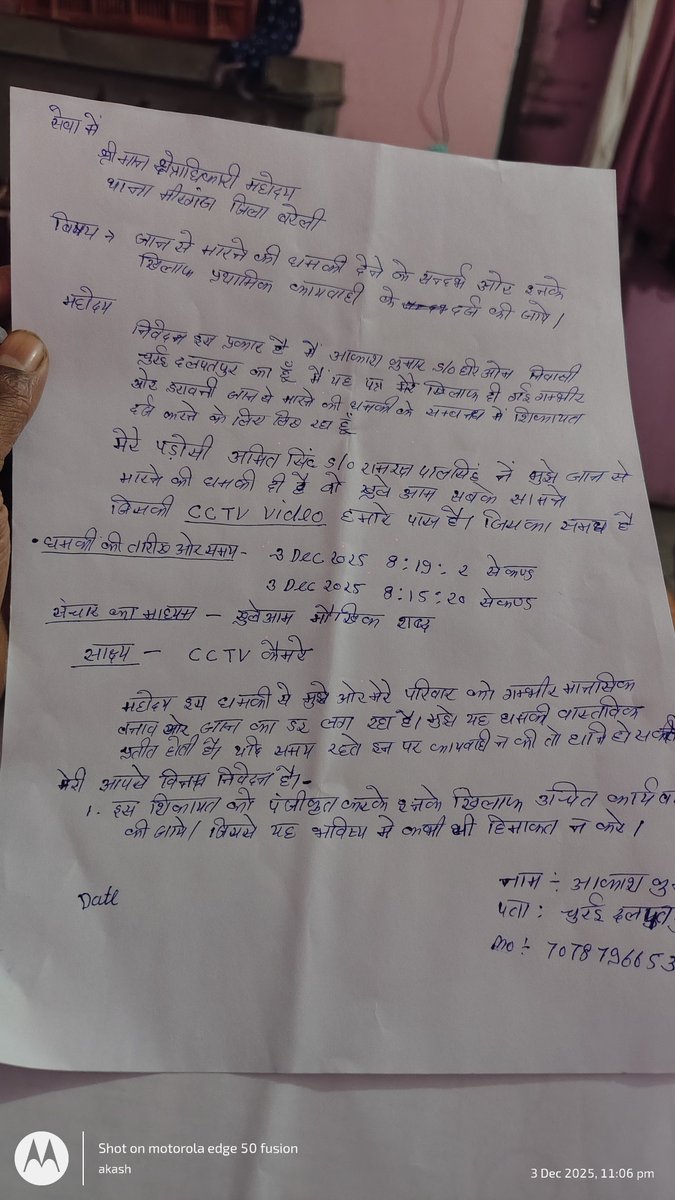 सेवा में
श्रीमान क्षेत्राधिकारी महोदय
थाना मीरगंज जिला बरेली
विषय → जान से मारने की धमकी देने के सन्दर्भ और इनके
खिलाफ प्रथामिक कायवाही के दर्ज की जाये।
महोदय
निवेदन इस प्रकार है मैं आकाश कुमार S/O निवासी
चुरई दलपतपुर का हूँ मैं यह पत्र मेरे खिलाफ दी गई गम्भीर
और डरावनी जान से मारने की धमकी के सम्बन्ध में शिकायत
दर्ज करने के लिए लिख रहा हूँ
मेरे पड़ोसी अमित सिंह S/O पालसिंह नें मुझे जान से
मारने की धमकी दी है वो खुले आम सबके सामने
जिसकी CCTV Video हमारे पास है। जिसका समय है
• धमकी की तारीख और समय - 3 Dec 2025 8:19:2 सेकण्ड
3 Dec 2025 8:15:20 सेकण्ड
संचार का माध्यम - खुलेआम मौखिक शब्द
साक्ष्य - CCTV कैमरे
महोदय इस धमकी से मुझे और मेरे परिवार को गम्भीर मानसिक
तनाव और जान का डर लग रहा है। मुझे यह धमकी वास्तविक
प्रतीत होती है। यदि समय रहते इन पर कायवाही न की तो हानि हो सकती
मेरी आपसे विनम्र निवेदन है।-
1. इस शिकायत को पंजीकृत करके इनके खिलाफ उचित कार्यव
की जाये। जिससे यह भविष्य मे कभी भी हिमाकत न करे।
नाम :- आकाश कु
पता : चुरई दलपतपु
Date
mo :- 7078796653
Shot on motorola edge 50 fusion
akash
3 Dec 2025, 11:06 pm